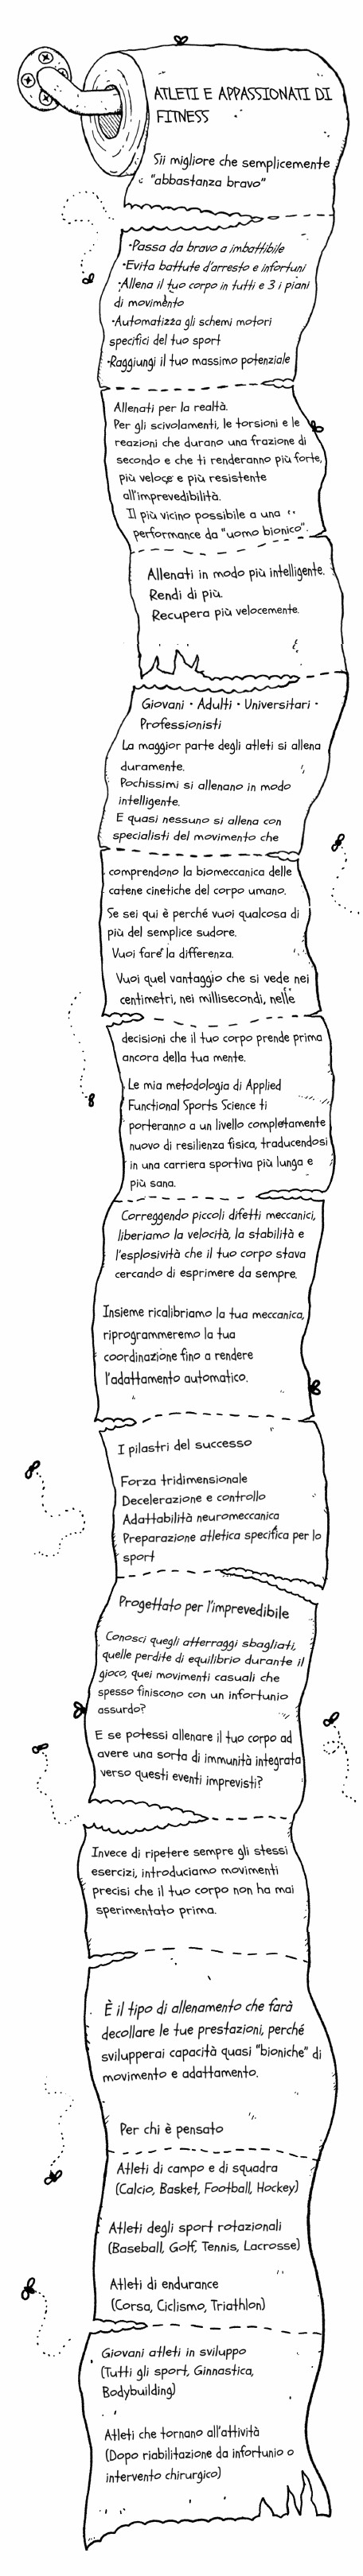 ATLETI E APPASSIONATI DI
FITNESS
Sii migliore che semplicemente
"abbastanza bravo"
•Passa da bravo a imbattibile
•Evita battute d'arresto e infortuni
•Allena il tuo corpo in tutti e 3 i piani
di movimento
•Automatizza gli schemi motori
specifici del tuo sport
•Raggiungi il tuo massimo potenziale
Allenati per la realtà.
Per gli scivolamenti, le torsioni e le
reazioni che durano una frazione di
secondo e che ti renderanno più forte,
più veloce e più resistente
all'imprevedibilità.
Il più vicino possibile a una
performance da "uomo bionico".
Allenati in modo più intelligente.
Rendi di più.
Recupera più velocemente.
Giovani • Adulti • Universitari •
Professionisti
La maggior parte degli atleti si allena
duramente.
Pochissimi si allenano in modo
intelligente.
E quasi nessuno si allena con
specialisti del movimento che
comprendono la biomeccanica delle
catene cinetiche del corpo umano.
Se sei qui è perché vuoi qualcosa di
più del semplice sudore.
Vuoi fare la differenza.
Vuoi quel vantaggio che si vede nei
centimetri, nei millisecondi, nelle
decisioni che il tuo corpo prende prima
ancora della tua mente.
Le mia metodologia di Applied
Functional Sports Science ti
porteranno a un livello completamente
nuovo di resilienza fisica, traducendosi
in una carriera sportiva più lunga e
più sana.
Correggendo piccoli difetti meccanici,
liberiamo la velocità, la stabilità e
l'esplosività che il tuo corpo stava
cercando di esprimere da sempre.
Insieme ricalibriamo la tua meccanica,
riprogrammeremo la tua
coordinazione fino a rendere
l'adattamento automatico.
I pilastri del successo
Forza tridimensionale
Decelerazione e controllo
Adattabilità neuromeccanica
Preparazione atletica specifica per lo
sport
Progettato per l'imprevedibile
Conosci quegli atterraggi sbagliati,
quelle perdite di equilibrio durante il
gioco, quei movimenti casuali che
spesso finiscono con un infortunio
assurdo?
E se potessi allenare il tuo corpo ad
avere una sorta di immunità integrata
verso questi eventi imprevisti?
Invece di ripetere sempre gli stessi
esercizi, introduciamo movimenti
precisi che il tuo corpo non ha mai
sperimentato prima.
È il tipo di allenamento che farà
decollare le tue prestazioni, perché
svilupperai capacità quasi "bioniche" di
movimento e adattamento.
Per chi è pensato
Atleti di campo e di squadra
(Calcio, Basket, Football, Hockey)
Atleti degli sport rotazionali
(Baseball, Golf, Tennis, Lacrosse)
Atleti di endurance
(Corsa, Ciclismo, Triathlon)
Giovani atleti in sviluppo
(Tutti gli sport, Ginnastica,
Bodybuilding)
Atleti che tornano all'attività
(Dopo riabilitazione da infortunio o
intervento chirurgico)